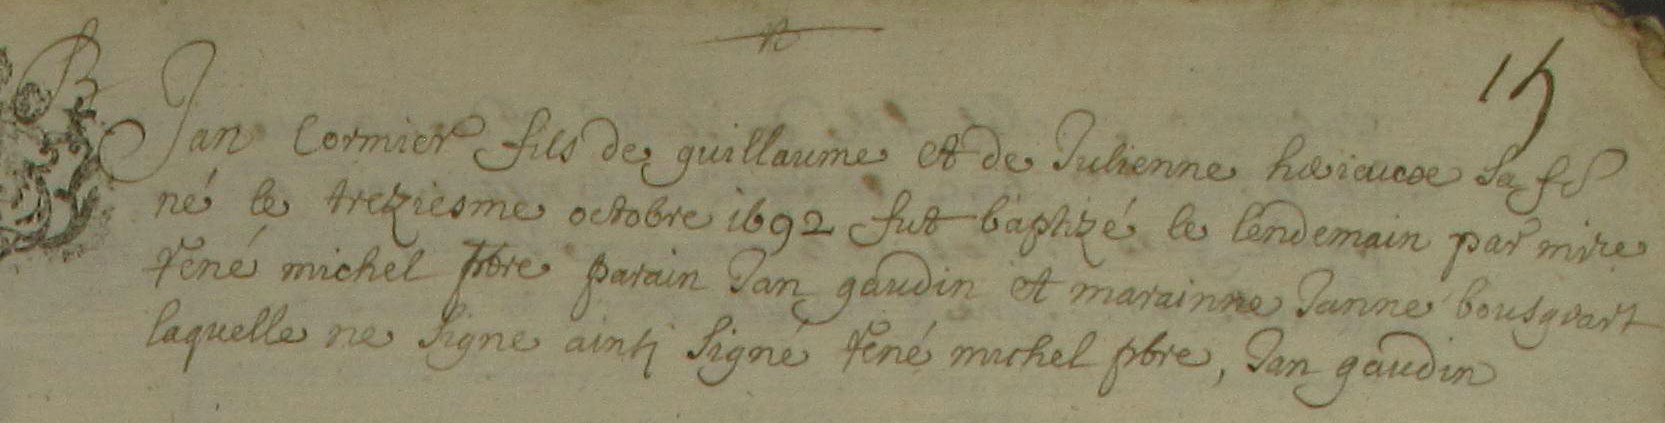 15
B
Jan Cormier fils de guillaume et de Julienne sa fe
né le treziesme octobre 1692 fut baptizé le lendemain par mire
rené michel pbre parain Jan gaudin et marainne Janne bousquart
laquelle ne signe ainsi signé rené michel pbre, Jan gaudin